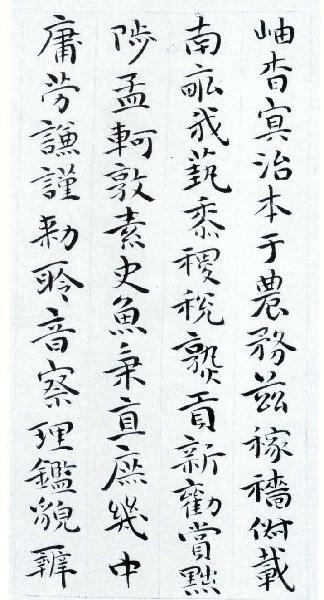 岫杳冥治本于農務茲稼穡俶載
南畝我藝黍稷稅熟貢新勸賞黜
陟孟軻敦素史魚秉直庶幾中
庸勞謙謹勅聆音察理鑑貌辨